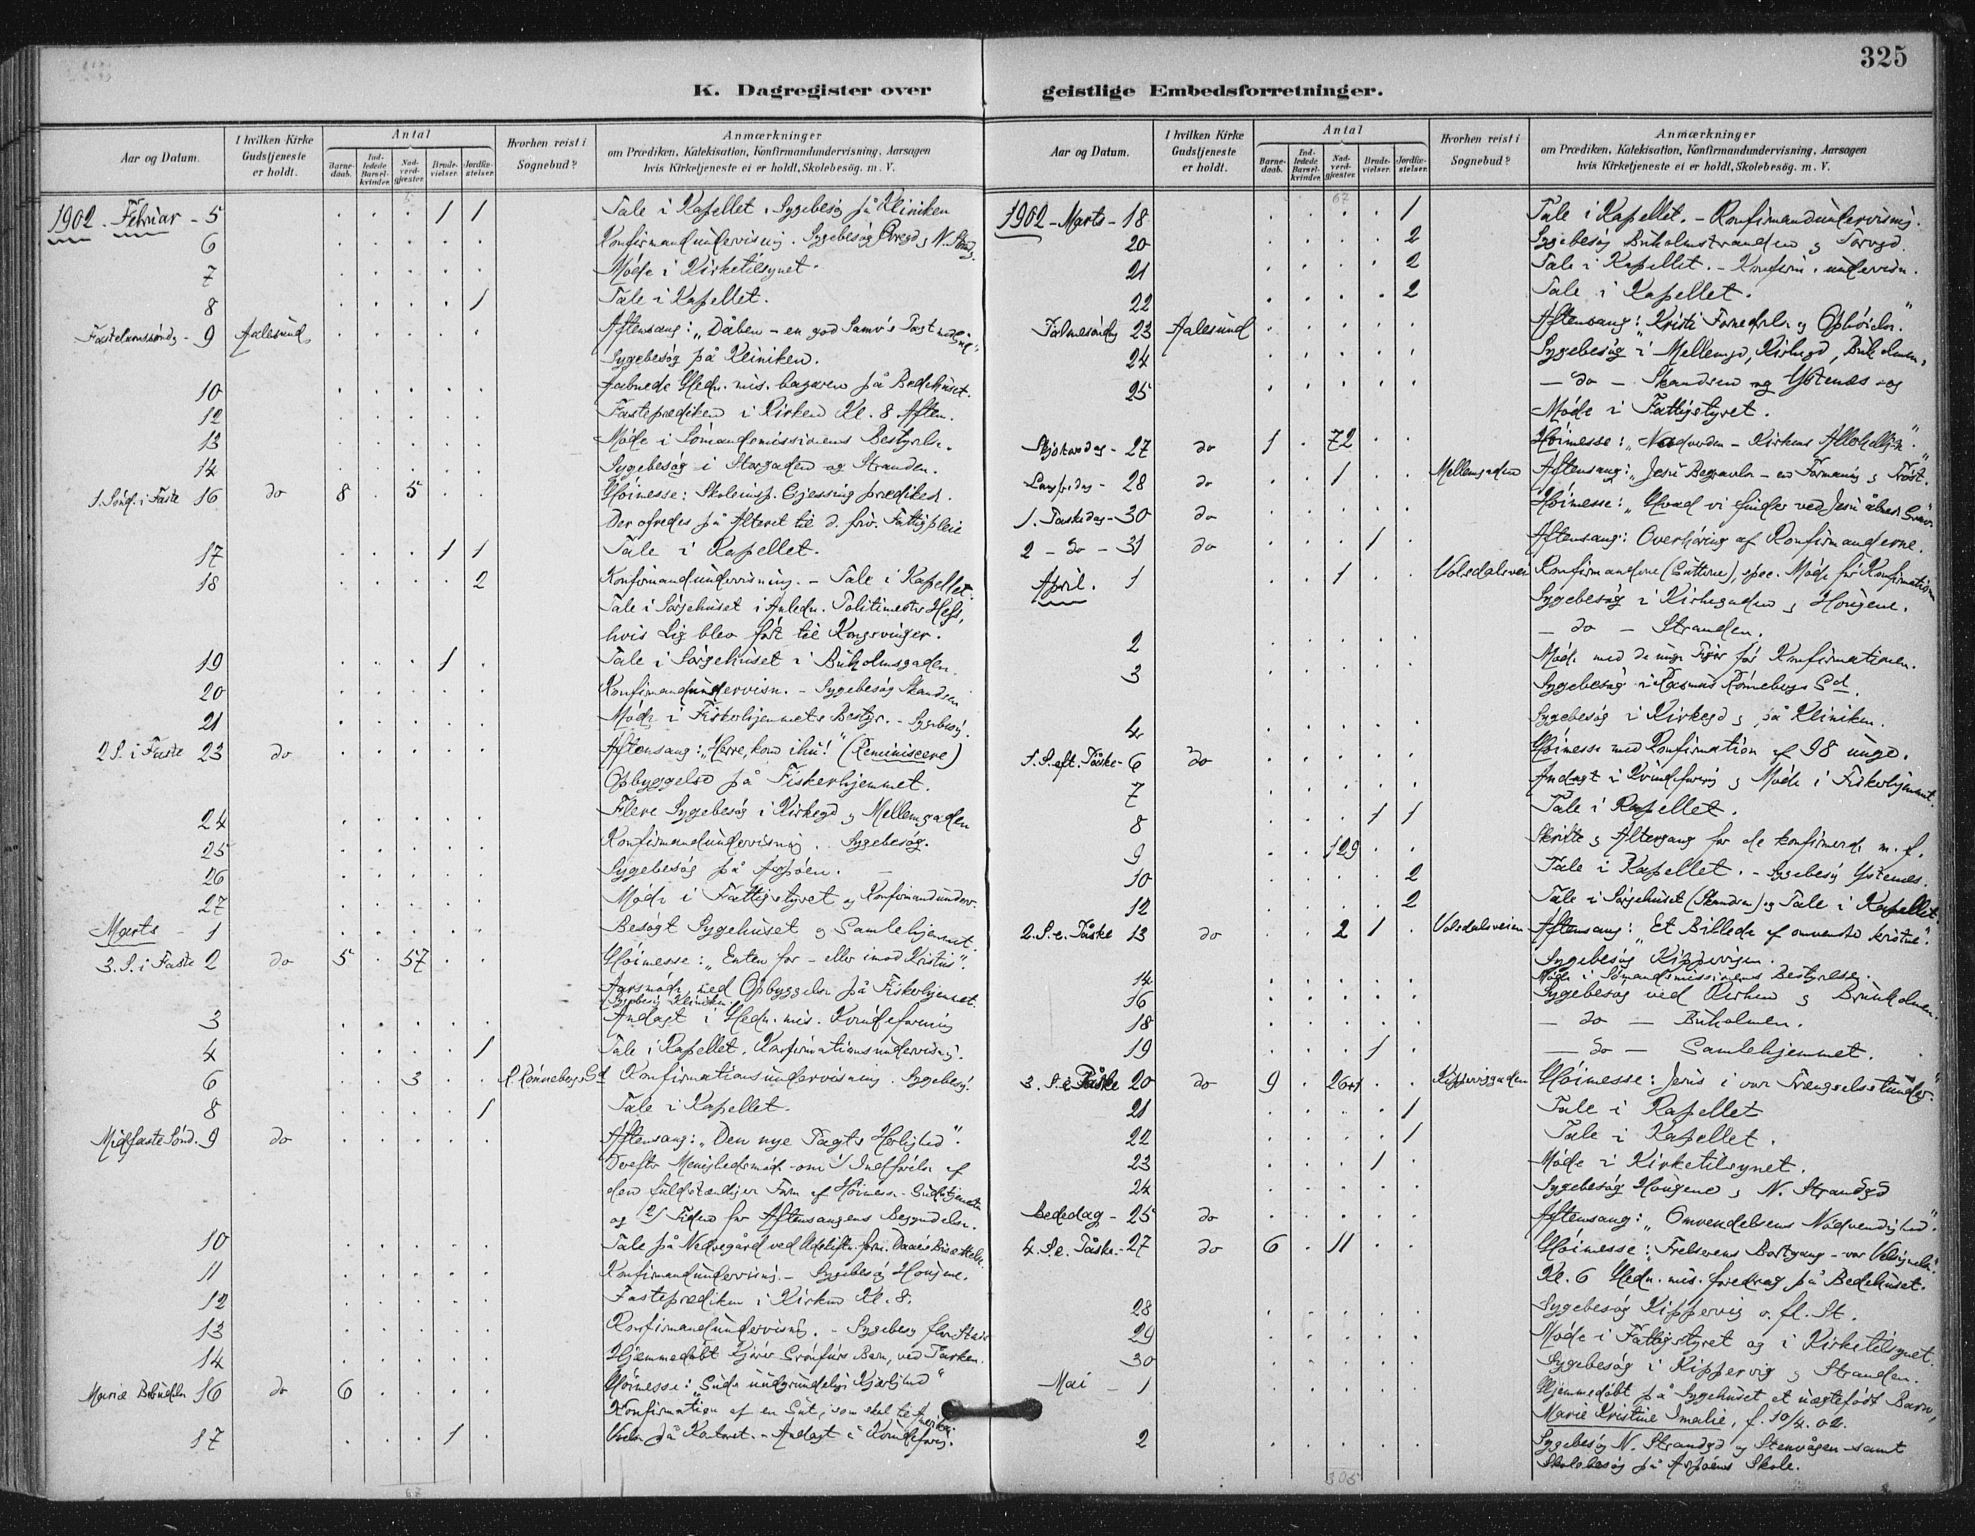 325
K. Dagregister over
geistlige Embedsforretninger.
Aar og Datum.
I hvilken Kirke Gudstjeneste er holdt.
Antal
Barnedaab.
Indledede Barselkvinder.
Nadverdgjæster.
Brudevielser.
Jordfæstelser.
Hvorhen reist i Sognebud?
Anmærkninger
om Prædiken, Katekisation, Konfirmandundervisning, Aarsagen
hvis Kirketjeneste ei er holdt, Skolebesög. m. V.
1902. Februar - 5 . . . 1 1 Tale i Kapellet. Sygebesög på Kliniken
6 . . . . . Konfirmandundervisning. Sygebesög
7 . . . . . Møde i Kirketilsynet.
8 . . . . 1 Tale i Kapellet.
Fastelavnssönd. - 9 Aalesund . . . . . Aftensang: „Dåben - en god Samv's Pagt med Gud"
Sygebesøg på Kliniken.
10 . . . . . Aabnede Hedn. mis. basaren på Bedehuset.
12 . . . . . Fasteprædiken i Kirken Kl. 8 Aften.
13 . . . . . Møde i Sømandsmissionens Bestyrelse.
14 . . . . . Sygebesög i Storgaden og Stranden.
1. Sönd. i Faste 16 do 8 . 5 . . Høimesse: Skoleinsp. Gjessing prædiked.
Der ofredes på Alteret til d. friv. Fattigpleie
17 . . . 1 1 Tale i Kapellet.
18 . . . . 2 Konfirmandundervisning. - Tale i Kapellet.
Tale i Sørgehuset i Anledn. Politimester Hess,
hvis Lig blev ført til Kongsvinger.
19 . . . 1 . Tale i Sørgehuset i Buholmsgaden.
20 . . . . . Konfirmandundervisn. - Sygebesög Skandsen
21 . . . . . Møde i Fiskerhjemmets Bestyr. - Sygebesög.
2. S. i Faste 23 do . . . . . Aftensang: „Herre, kom ihu!" (Reminiscere)
Opbyggelse på Fiskerhjemmet.
24 . . . . . Flere Sygebesög i Kirkegd og Mellemgaden
25 . . . . . Konfirmandundervisning. Sygebesög.
26 . . . . . Sygebesög på Aspøen.
27 . . . . . Møde i Fattigstyret og Konfirmandunderv.
Marts - 1 . . . . . Besøgt Sygehuset og Samlehjemmet.
3. S. i Faste 2 do 5 . 57 . . Høimesse: „Enten for - eller imod Kristus".
Aarsmøde med Opbyggelse på Fiskerhjemmet.
Sygebesög Kliniken.
3 . . . . . Andagt i Hedn. mis. Kvindeforening
4 . . . . 1 Tale i Kapellet. Konfirmationsundervisng.
6 . . 3 . . R. Rønnebergs Gd Konfirmationsundervisning. Sygebesög.
8 . . . . 1 Tale i Kapellet.
Midfaste Sönd. 9 do . . . . . Aftensang: „Den nye Pagts Herlighed".
Derefter Menighedsmøde om 1) Indførelse af
den fuldstændiger Form af Høimesse-Gudstjenesten
og 2) Tiden for Aftensangens Begyndelse.
10 . . . . . Tale på Nedregård ved
11 . . . . . Konfirmandundervisng. - Sygebesög Hougene.
12 . . . . . Fasteprædiken i Kirken Kl. 8.
13 . . . . . Konfirmandundervisng. - Sygebesög flere Steder
14 . . . . . Hjemmedøbt Barn, ved Parken.
Mariæ Bebudelse 16 do 6 . . . . Høimesse: „Guds uudgrundelige Kjærlighed"
Konfirmation af en Gut, som skal til Amerika.
17 . . . 1 . Vielse på Kontoret. - Andagt i Kvindeforeng.
68
Aar og Datum.
I hvilken Kirke Gudstjeneste er holdt.
Antal
Barnedaab.
Indledede Barselkvinder.
Nadverdgjæster.
Brudevielser.
Jordfæstelser.
Hvorhen reist i Sognebud?
Anmærkninger
om Prædiken, Katekisation, Konfirmandundervisning, Aarsagen
hvis Kirketjeneste ei er holdt, Skolebesög. m. V.
67
1902 - Marts - 18 . . . . 1 Tale i Kapellet. - Konfirmandundervisng.
20 . . . . 2 Sygebesög Buholmstranden og Torvgd.
21 . . . . 2 Tale i Kapellet. - Konfirm. undervisn.
22 . . . . 2 Tale i Kapellet.
Palmesöndag 23 Aalesund . . . . . Aftensang: „Kristi Fornedrelse og Ophöielse."
24 . . . . . Sygebesög i Mellemgd, Kirkegd, Buholmen,
25 . . . . . - do - Skandsen og Ystenes og
Møde i Fattigstyret.
Skjærtorsdag - 27 do 1 . 72 . . Høimesse: „Nadverden - Kirkens Allehellige".
Langfredag - 28 do . . 1 . . Mellemgaden Aftensang: „Jesu Begravelse - en Formaning og Trøst.
1. Paaskedag - 30 do . . . . . Høimesse: „Hvad vi finder ved Jesu åbne Grav"
2 - do - 31 do . . . 1 . Aftensang: Overhøring af Konfirmanderne.
April. 1 . . 1 . . Volsdalsvei Konfirmanderne (Gutterne), spec. Møde før Konfirmation
Sygebesøg i Kirkegaden og Hougene.
2 . . . . . - do - Stranden.
Møde med de unge Piger før Konfirmationen.
3 . . . . . Sygebesøg i Rasmus Rønnebergs Gd.
4 . . . . . Sygebesög i Kirkegd og på Kliniken.
1. S. eft. Påske - 6 do . . . . . Høimesse med Konfirmation af 98 unge.
7 . . . . . Andagt i Kvindeforeng og Møde i Fiskerhjemmet.
8 . . . 1 1 Tale i Kapellet.
9 . . 129 . . Skrifte og Altergang for de konfirmerede m. fl.
10 . . . . 2 Tale i Kapellet. - Sygebesög Ystenes.
12 . . . . 2 Tale i Sørgehuset (Skandsen) og Tale i Kapellet.
2. S. e. Påske 13 do . . 2 1 . Volsdalsveien Aftensang: „Et Billede af omvendte kristne".
Sygebesög Kippervigen.
14 . . . . . Møde i Sømandsmissionens Bestyrelse.
16 . . . . . Sygebesøg ved Kirken og Brunholmen.
18 . . . . . - do - Buholmen.
19 . . . 1 . - do - Samlehjemmet.
3. S. e. Påske 20 do 9 . 26+1 . . Kippervigaden Høimesse: Jesus i vor Trængselsstunder.
21 . . . . 1 Tale i Kapellet
22 . . . . 1 Tale i Kapellet.
23 . . . 1 . Møde i Kirketilsynet.
24 . . . . . Sygebesög Hougene og N. Strandgd
Bededag - 25 do . . . . . Aftensang: „Omvendelsens Nødvendighed".
4. S. e. Påske - 27 do 6 . 11 . . Høimesse: „Frelserens Bortgang - vor Velsignelse".
Kl. 6 Hedn. mis. foredrag på Bedehuset.
28 . . . . . Sygebesög Kippervig o. fl. St.
29 . . . . . Møde i Fattigstyret og i Kirketilsynet.
30 . . . . . Sygebesög i Kippervig og Stranden.
Mai - 1 . . . . . Hjemmedøbt på Sygehuset et uægtefødt Barn,
Marie Kristine Amalie, f. 10/4. 02.
2 . . . . . Sygebesög N. Strandgd og Stenvågen samt
Skolebesög på Aspøens Skole.
305